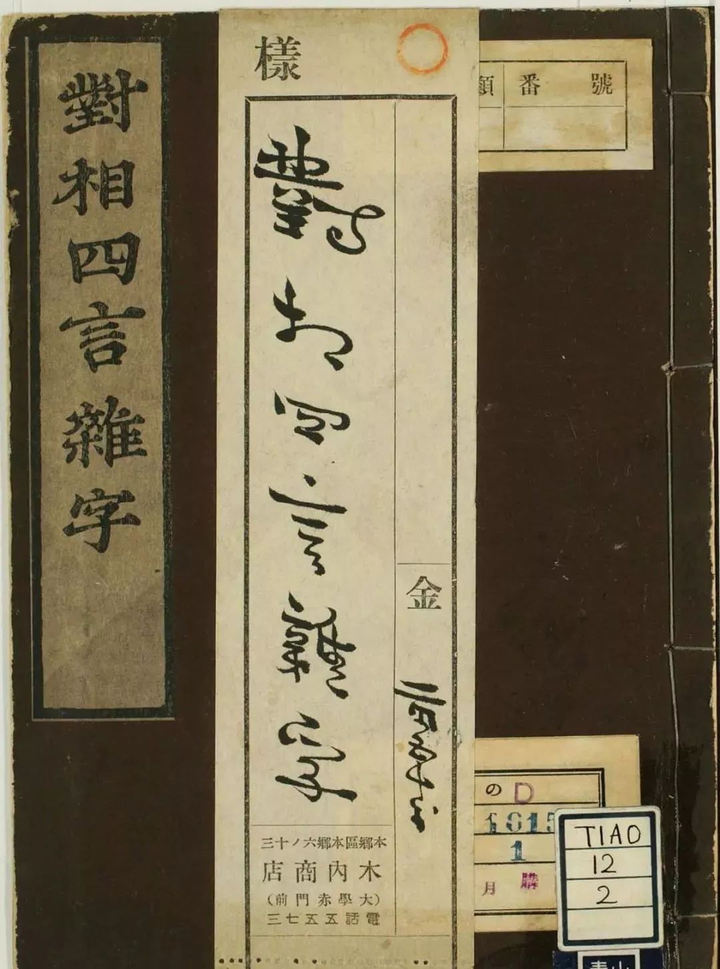 對相四言雜字
樣
對相四言雜字
金
本郷區本郷六ノ十三
木內商店
(大學赤門前)
電話五五七三
番號
の D
1
月 購
TIAO
12
2
青山